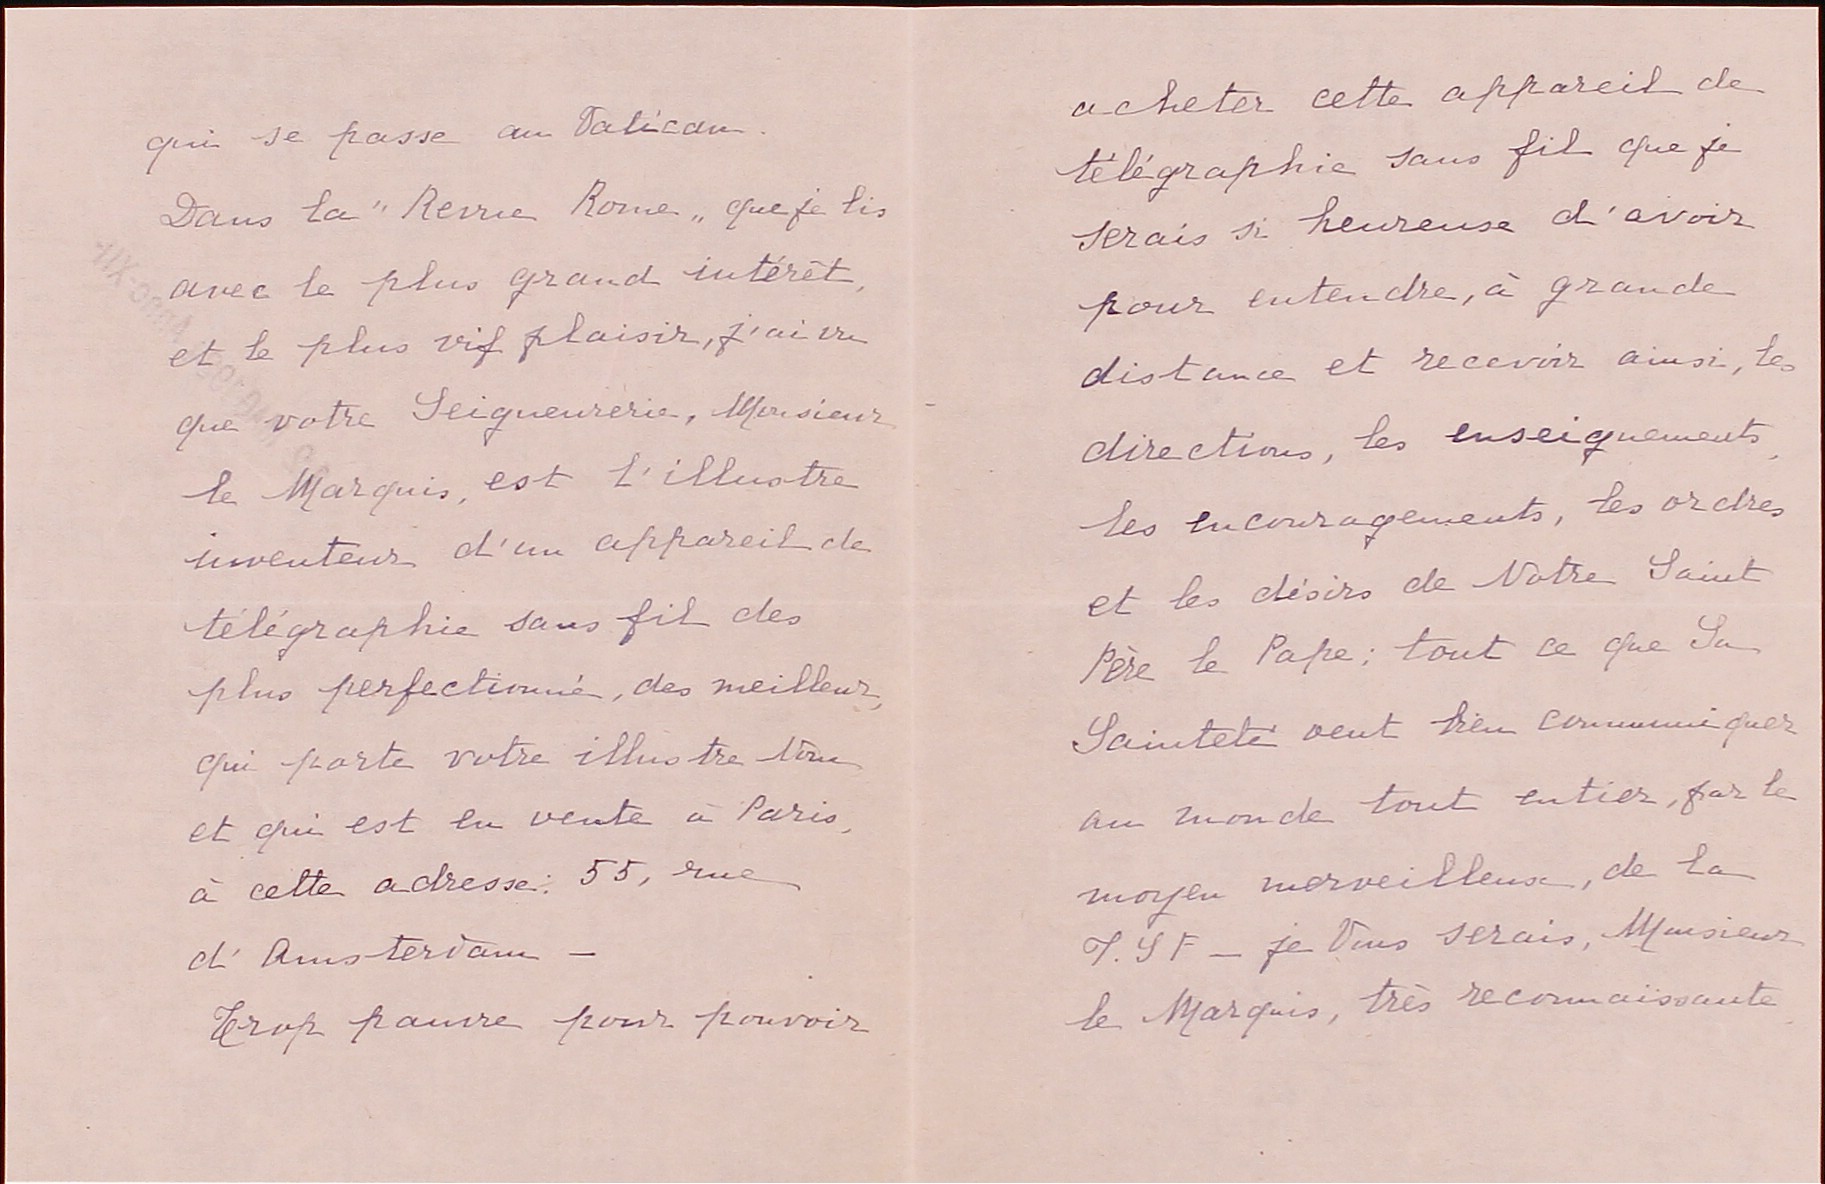 qui se passe au Vatican.
Dans la "Revue Rome" que je lis
avec le plus grand intérêt,
et le plus vif plaisir, j'ai vu
que votre Seigneurerie, Monsieur
le Marquis, est l'illustre
inventeur d'un appareil de
télégraphie sans fil des
plus perfectionné, des meilleur,
qui porte votre illustre Nom
et qui est en vente à Paris,
à cette adresse: 55, rue
d'Amsterdam –
Trop pauvre pour pouvoir
acheter cette appareil de
télégraphie sans fil que je
serais si heureuse d'avoir
pour entendre, à grande
distance et recevoir ainsi, les
directions, les enseignements,
les encouragements, les ordres
et les désirs de Notre Saint
Père le Pape; tout ce que Sa
Sainteté veut bien communiquer
au monde tout entier, par le
moyen merveilleux, de la
T.S F – je Vous serais, Monsieur
le Marquis, très reconnaissante